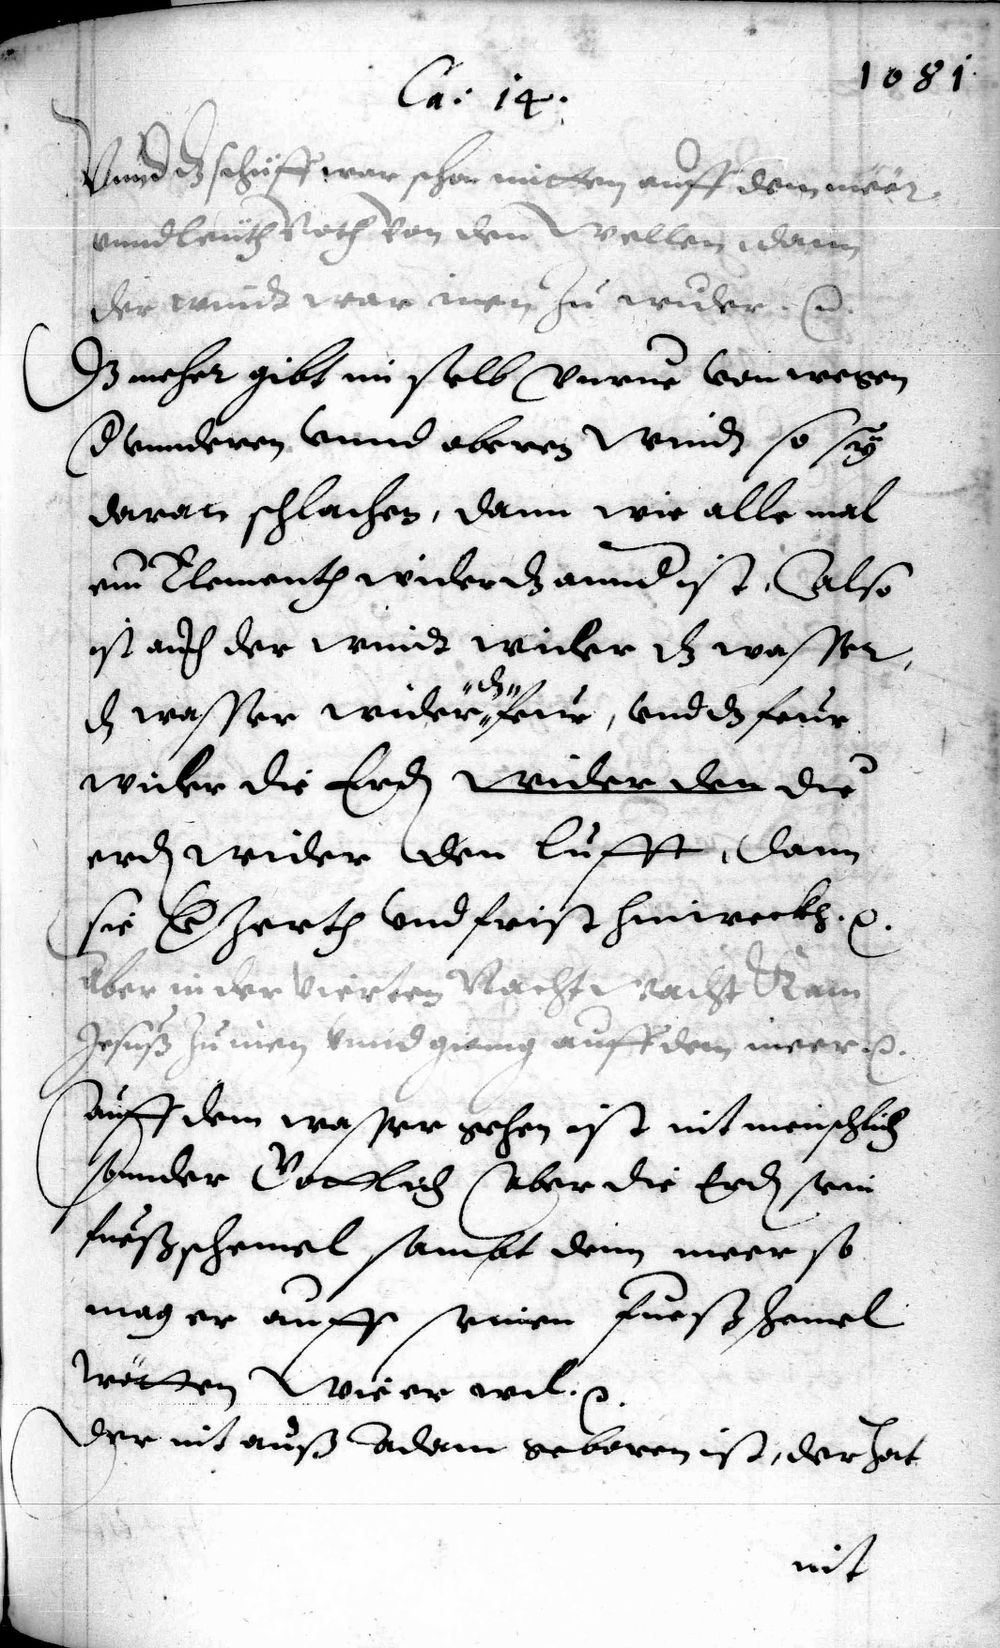 Ca: 14.
1081
Vnnd dz schüff war schon mitten auff dem meer,
vnnd leüth Noth von den Wellen dann
der windt war inen zu wider. ꝛc.
Dz meher gibt im selb Vnrue von wegen
d vnnderen vnnd oberen Windt so sÿ
daran schlachen, dann wie alle mal
ein Element wider dz annd ist, also
ist auch der windt wider dz wasser,
dz wasser wider dz feur, vnd dz feur
wider die Erd wider den die
erd wider den lufft, dann
sie Zerth vnd frist hinweckh. ꝛc.
Aber in der Vierten Nacht wacht Kam
Jesuß zu inen vnnd gieng auff dem meer ꝛc.
auff dem wasser gehen ist nit menschlich
sonnder Göttlich aber die Erd sein
fueßschemel sambt dem meer so
mag er auff seinen fueßschemel
trötten Wie er wil. ꝛc.
Der nit auß Adam geboren ist, der hat
nit